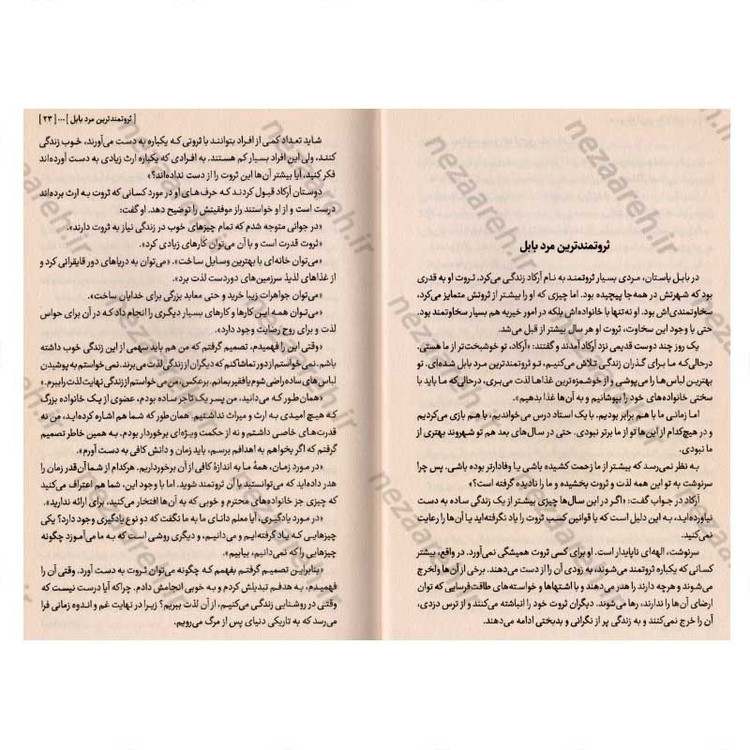 ثروتمندترین مرد بابل
در بابل باستان، مردی بسیار ثروتمند به نام آرکاد زندگی می‌کرد. ثروت او به قدری
بود که شهرتش در همه‌جا پیچیده بود. اما چیزی که او را بیشتر از ثروتش متمایز می‌کرد،
سخاوتمندی‌اش بود. او نه‌تنها با خانواده‌اش بلکه در امور خیریه هم بسیار سخاوتمند بود.
حتی با وجود این سخاوت، ثروت او هر سال بیشتر از قبل می‌شد.
یک روز چند دوست قدیمی نزد آرکاد آمدند و گفتند: «آرکاد، تو خوشبخت‌تر از ما هستی.
درحالی‌که ما برای گذران زندگی تلاش می‌کنیم، تو ثروتمندترین مرد بابل شده‌ای. تو
بهترین لباس‌ها را می‌پوشی و از خوشمزه‌ترین غذاها لذت می‌بری، درحالی‌که ما باید با
سختی خانواده‌های خود را بپوشانیم و به آن‌ها غذا بدهیم».
اما زمانی ما با هم برابر بودیم. با یک استاد درس می‌خواندیم، با هم بازی می‌کردیم
و در هیچ‌کدام از این‌ها تو از ما برتر نبودی. حتی در سال‌های بعد هم تو شهروند بهتری از
ما نبودی.
به نظر نمی‌رسد که بیشتر از ما زحمت کشیده باشی یا وفادارتر بوده باشی. پس چرا
سرنوشت به تو این همه لذت و ثروت بخشیده و ما را نادیده گرفته است؟»
آرکاد در جواب گفت: «اگر در این سال‌ها چیزی بیشتر از یک زندگی ساده به دست
نیاورده‌اید، به این دلیل است که یا قوانین کسب ثروت را یاد نگرفته‌اید یا آن‌ها را رعایت
نمی‌کنید.
سرنوشت، الهه‌ای ناپایدار است. او برای کسی ثروت همیشگی نمی‌آورد. در واقع، بیشتر
کسانی که یکباره ثروتمند می‌شوند، به زودی آن را از دست می‌دهند. برخی از آن‌ها ولخرج
می‌شوند و هرچه دارند را هدر می‌دهند و با اشتهاها و خواسته‌های طاقت‌فرسایی که توان
ارضای آن‌ها را ندارند، رها می‌شوند. دیگران ثروت خود را انباشته می‌کنند و از ترس دزدی،
آن را خرج نمی‌کنند و به زندگی پر از نگرانی و بدبختی ادامه می‌دهند.
[ ثروتمندترین مرد بابل ] ... [ ۲۳ ]
شاید تعداد کمی از افراد بتوانند با ثروتی که یکباره به دست می‌آورند، خوب زندگی
کنند، ولی این افراد بسیار کم هستند. به افرادی که یکباره ارث زیادی به دست آورده‌اند
فکر کنید، آیا بیشتر آن‌ها این ثروت را از دست نداده‌اند؟»
دوستان آرکاد قبول کردند که حرف‌های او در مورد کسانی که ثروت به ارث برده‌اند
درست است و از او خواستند راز موفقیتش را توضیح دهد. او گفت:
«در جوانی متوجه شدم که تمام چیزهای خوب در زندگی نیاز به ثروت دارند».
«ثروت قدرت است و با آن می‌توان کارهای زیادی کرد».
«می‌توان خانه‌ای با بهترین وسایل ساخت». «می‌توان به دریاهای دور قایقرانی کرد و
از غذاهای لذیذ سرزمین‌های دوردست لذت برد».
«می‌توان جواهرات زیبا خرید و حتی معابد بزرگی برای خدایان ساخت».
«می‌توان همه این کارها و کارهای بسیار دیگری را انجام داد که در آن برای حواس
لذت و برای روح رضایت وجود دارد».
«وقتی این را فهمیدم، تصمیم گرفتم که من هم باید سهمی از این زندگی خوب داشته
باشم. نمی‌خواستم از دور تماشا کنم که دیگران از زندگی لذت می‌برند. نمی‌خواستم به پوشیدن
لباس‌های ساده راضی شوم یا فقیر بمانم. برعکس، من می‌خواستم از زندگی نهایت لذت را ببرم».
«همان‌طور که می‌دانید، من پسر یک تاجر ساده بودم، عضوی از یک خانواده بزرگ
که هیچ امیدی به ارث و میراث نداشتیم. همان طور که شما هم اشاره کرده‌اید، من نه
قدرت‌های خاصی داشتم و نه از حکمت ویژه‌ای برخوردار بودم. به همین خاطر تصمیم
گرفتم که اگر بخواهم به اهدافم برسم، باید زمان و دانش کافی به دست آورم».
«در مورد زمان، همهٔ ما به اندازهٔ کافی از آن برخورداریم. هرکدام از شما آن‌قدر زمان را
هدر داده‌اید که می‌توانستید با آن ثروتمند شوید. اما با وجود این، شما هم اعتراف می‌کنید
که چیزی جز خانواده‌های محترم و خوبی که به آن‌ها افتخار می‌کنید، برای ارائه ندارید».
«در مورد یادگیری، آیا معلم دانای ما به ما نگفت که دو نوع یادگیری وجود دارد؟ یکی
چیزهایی که یاد گرفته‌ایم و می‌دانیم، و دیگری روشی است که به ما می‌آموزد چگونه
چیزهایی را که نمی‌دانیم، بیابیم».
«بنابراین تصمیم گرفتم بفهمم که چگونه می‌توان ثروت به دست آورد. وقتی آن را
فهمیدم، به هدفم تبدیلش کردم و به خوبی انجامش دادم. چراکه آیا درست نیست که
وقتی در روشنایی زندگی می‌کنیم، از آن لذت ببریم؟ زیرا در نهایت غم و اندوه زمانی فرا
می‌رسد که به تاریکی دنیای پس از مرگ می‌رویم.
nezaareh.ir